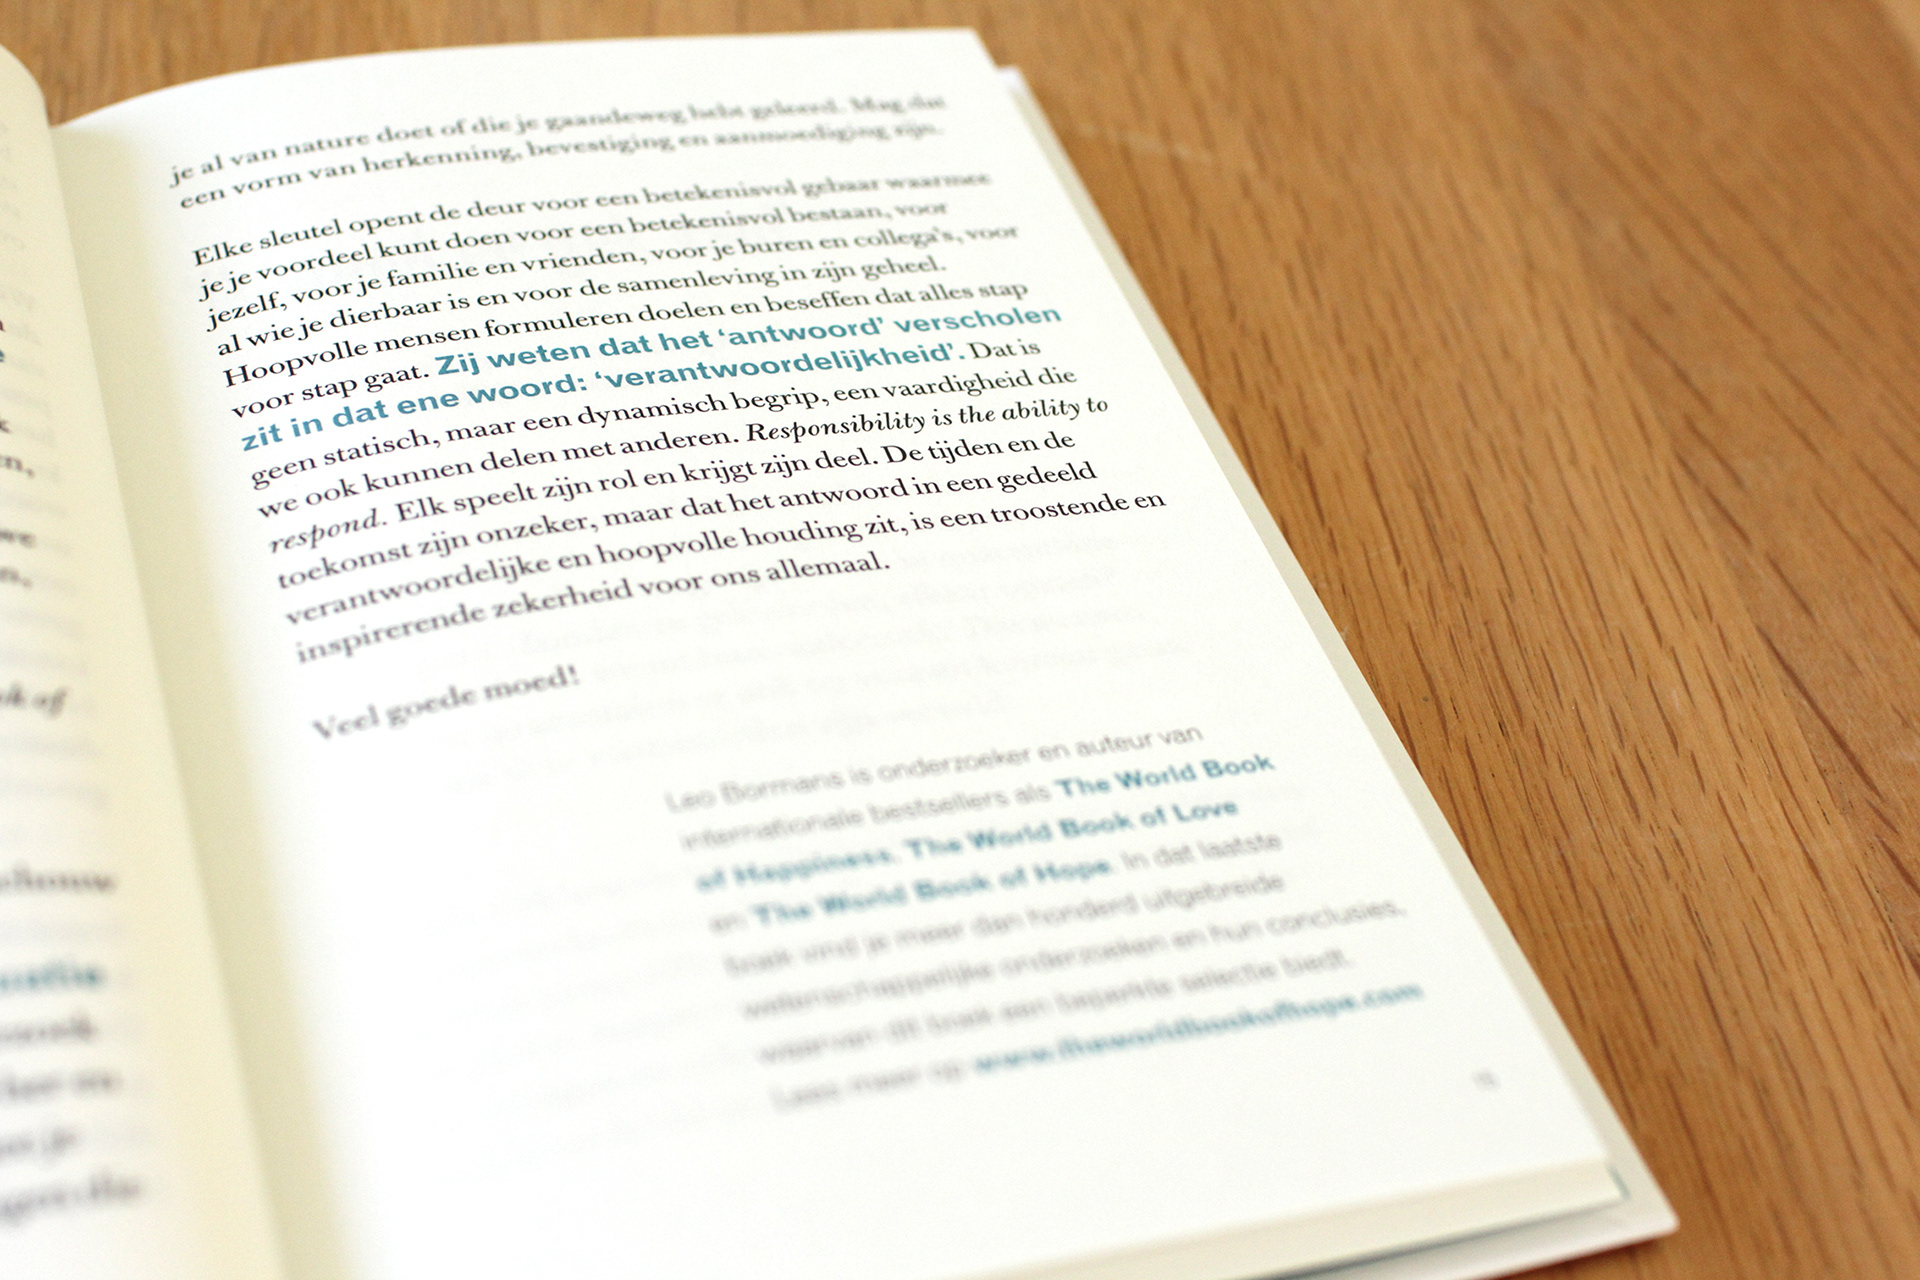 ok of
je al van nature doet of die je gaandeweg hebt geleerd. Mag dat
een vorm van herkenning, bevestiging en aanmoediging zijn.
Elke sleutel opent de deur voor een betekenisvol gebaar waarmee
je je voordeel kunt doen voor een betekenisvol bestaan, voor
jezelf, voor je familie en vrienden, voor je buren en collega's, voor
al wie je dierbaar is en voor de samenleving in zijn geheel.
Hoopvolle mensen formuleren doelen en beseffen dat alles stap
voor stap gaat. Zij weten dat het ‘antwoord’ verscholen
zit in dat ene woord: ‘verantwoordelijkheid’. Dat is
geen statisch, maar een dynamisch begrip, een vaardigheid die
we ook kunnen delen met anderen. Responsibility is the ability to
respond. Elk speelt zijn rol en krijgt zijn deel. De tijden en de
toekomst zijn onzeker, maar dat het antwoord in een gedeeld
verantwoordelijke en hoopvolle houding zit, is een troostende en
inspirerende zekerheid voor ons allemaal.
Veel goede moed!
Leo Bormans is onderzoeker en auteur van
internationale bestsellers als The World Book
of Happiness, The World Book of Love
en The World Book of Hope. In dat laatste
boek vind je meer dan honderd uitgebreide
wetenschappelijke onderzoeken en hun conclusies,
waarvan dit boek een beperkte selectie biedt.
Lees meer op www.theworldbookofhope.com